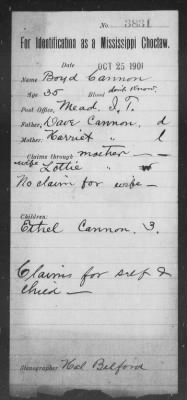 No. 3831
For Identification as a Mississippi Choctaw.
Date OCT 25 1901
Name Boyd Cannon
Age 35 Blood don't know.
Post Office, Mead, I.T.
Father, Dave Cannon. d
Mother, Harriet " l
Claims through mother —
wife Lottie " w
No claim for wife —
Children:
Ethel Cannon. 3.
Claims for self &
child —
Stenographer Hal Belford